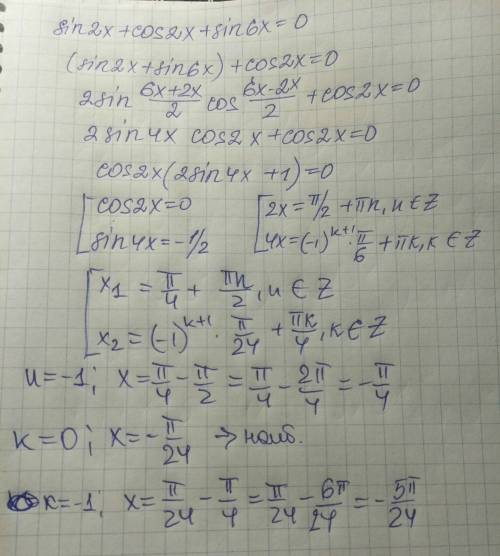 sin2x+cos2x+sin6x=0
(sin2x+sin6x)+cos2x=0
2sin (6x+2x)/2 cos (6x-2x)/2 + cos2x=0
2sin4x cos2x+cos2x=0
cos2x(2sin4x+1)=0
[cos2x=0 [2x=π/2+πn, n∈Z
[sin4x=-1/2 [4x=(-1)^(k+1)·π/6+πk, k∈Z
[x₁=π/4+πn/2, n∈Z
[x₂=(-1)^(k+1)·π/24+πk/4, k∈Z
n=-1; x=π/4-π/2=π/4-2π/4=-π/4
k=0; x=-π/24 → наиб.
k=-1; x=π/24-π/4=π/24-6π/24=-5π/24